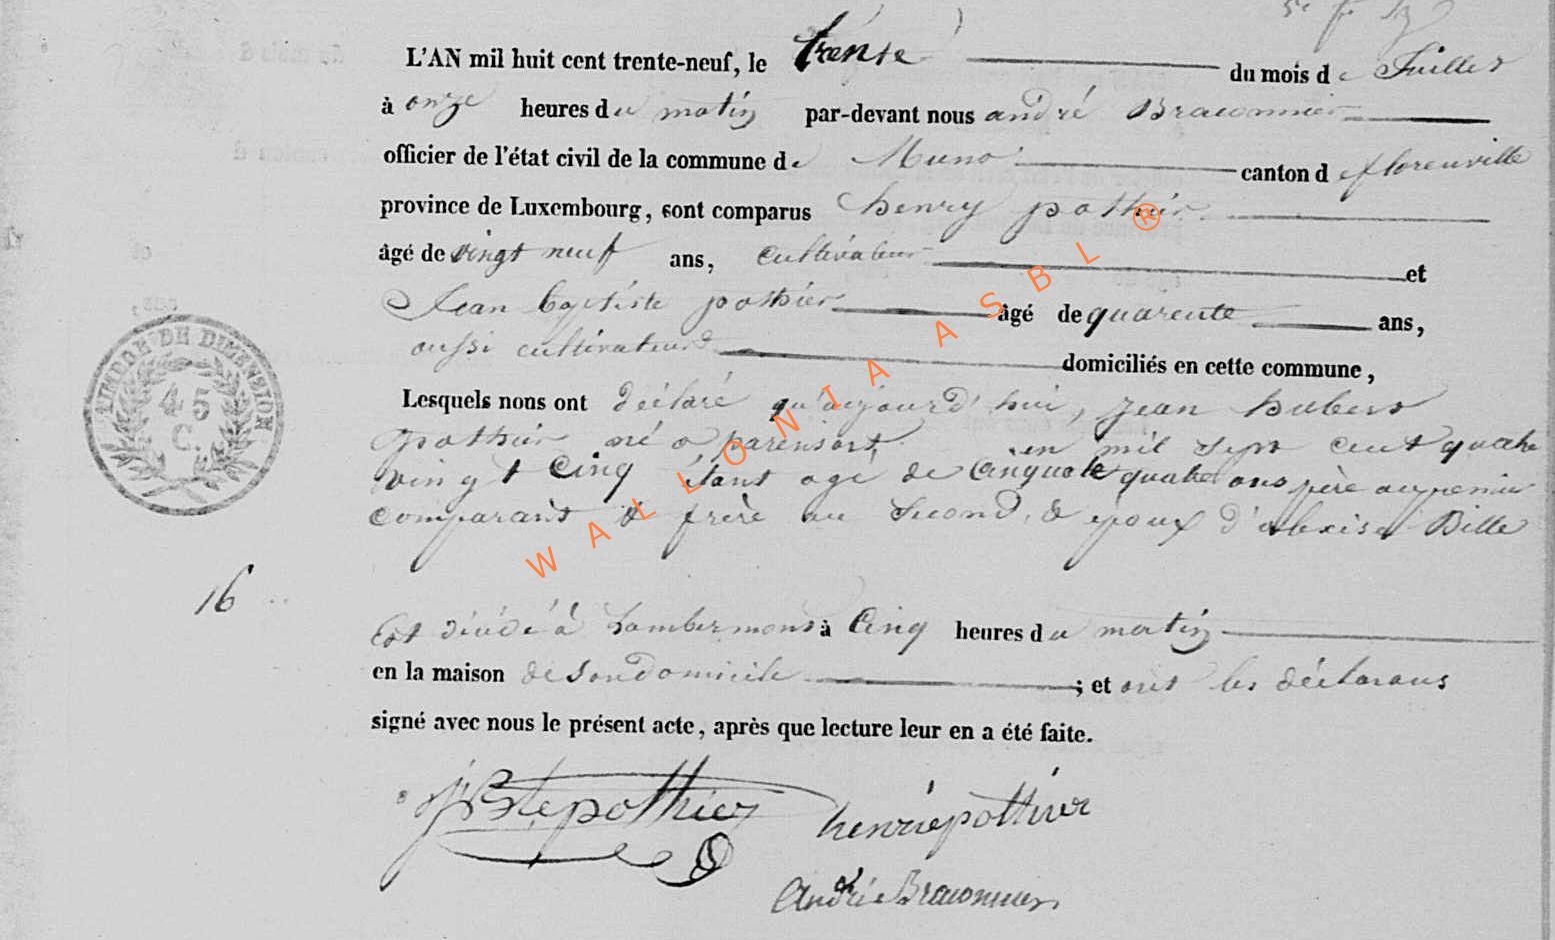 L'AN mil huit cent trente-neuf, le trente du mois de Juillet
à onze heures du matin par-devant nous andré Braconnier
officier de l'état civil de la commune de Muno canton de florenville
province de Luxembourg, sont comparus henry pothier
âgé de vingt neuf ans, cultivateur et
Jean baptiste pothier âgé de quarente ans,
aussi cultivateur domiciliés en cette commune,
Lesquels nous ont déclaré qu'aujourd'hui, jean hubert
pothier né a en mil sept cent quatre
vingt cinq étant agé de cinquate quatre ans père au premier
comparant & frère au second, & époux d' Bille
16
Est décédé à Lambermont à cinq heures du matin
en la maison de son domicile ; et ont les déclarans
signé avec nous le présent acte, après que lecture leur en a été faite.
JBte pothier
henrie pothier
André Braconnier
TIMBRE DE DIMENSION
45
C.
WALLONIA ASBL ®